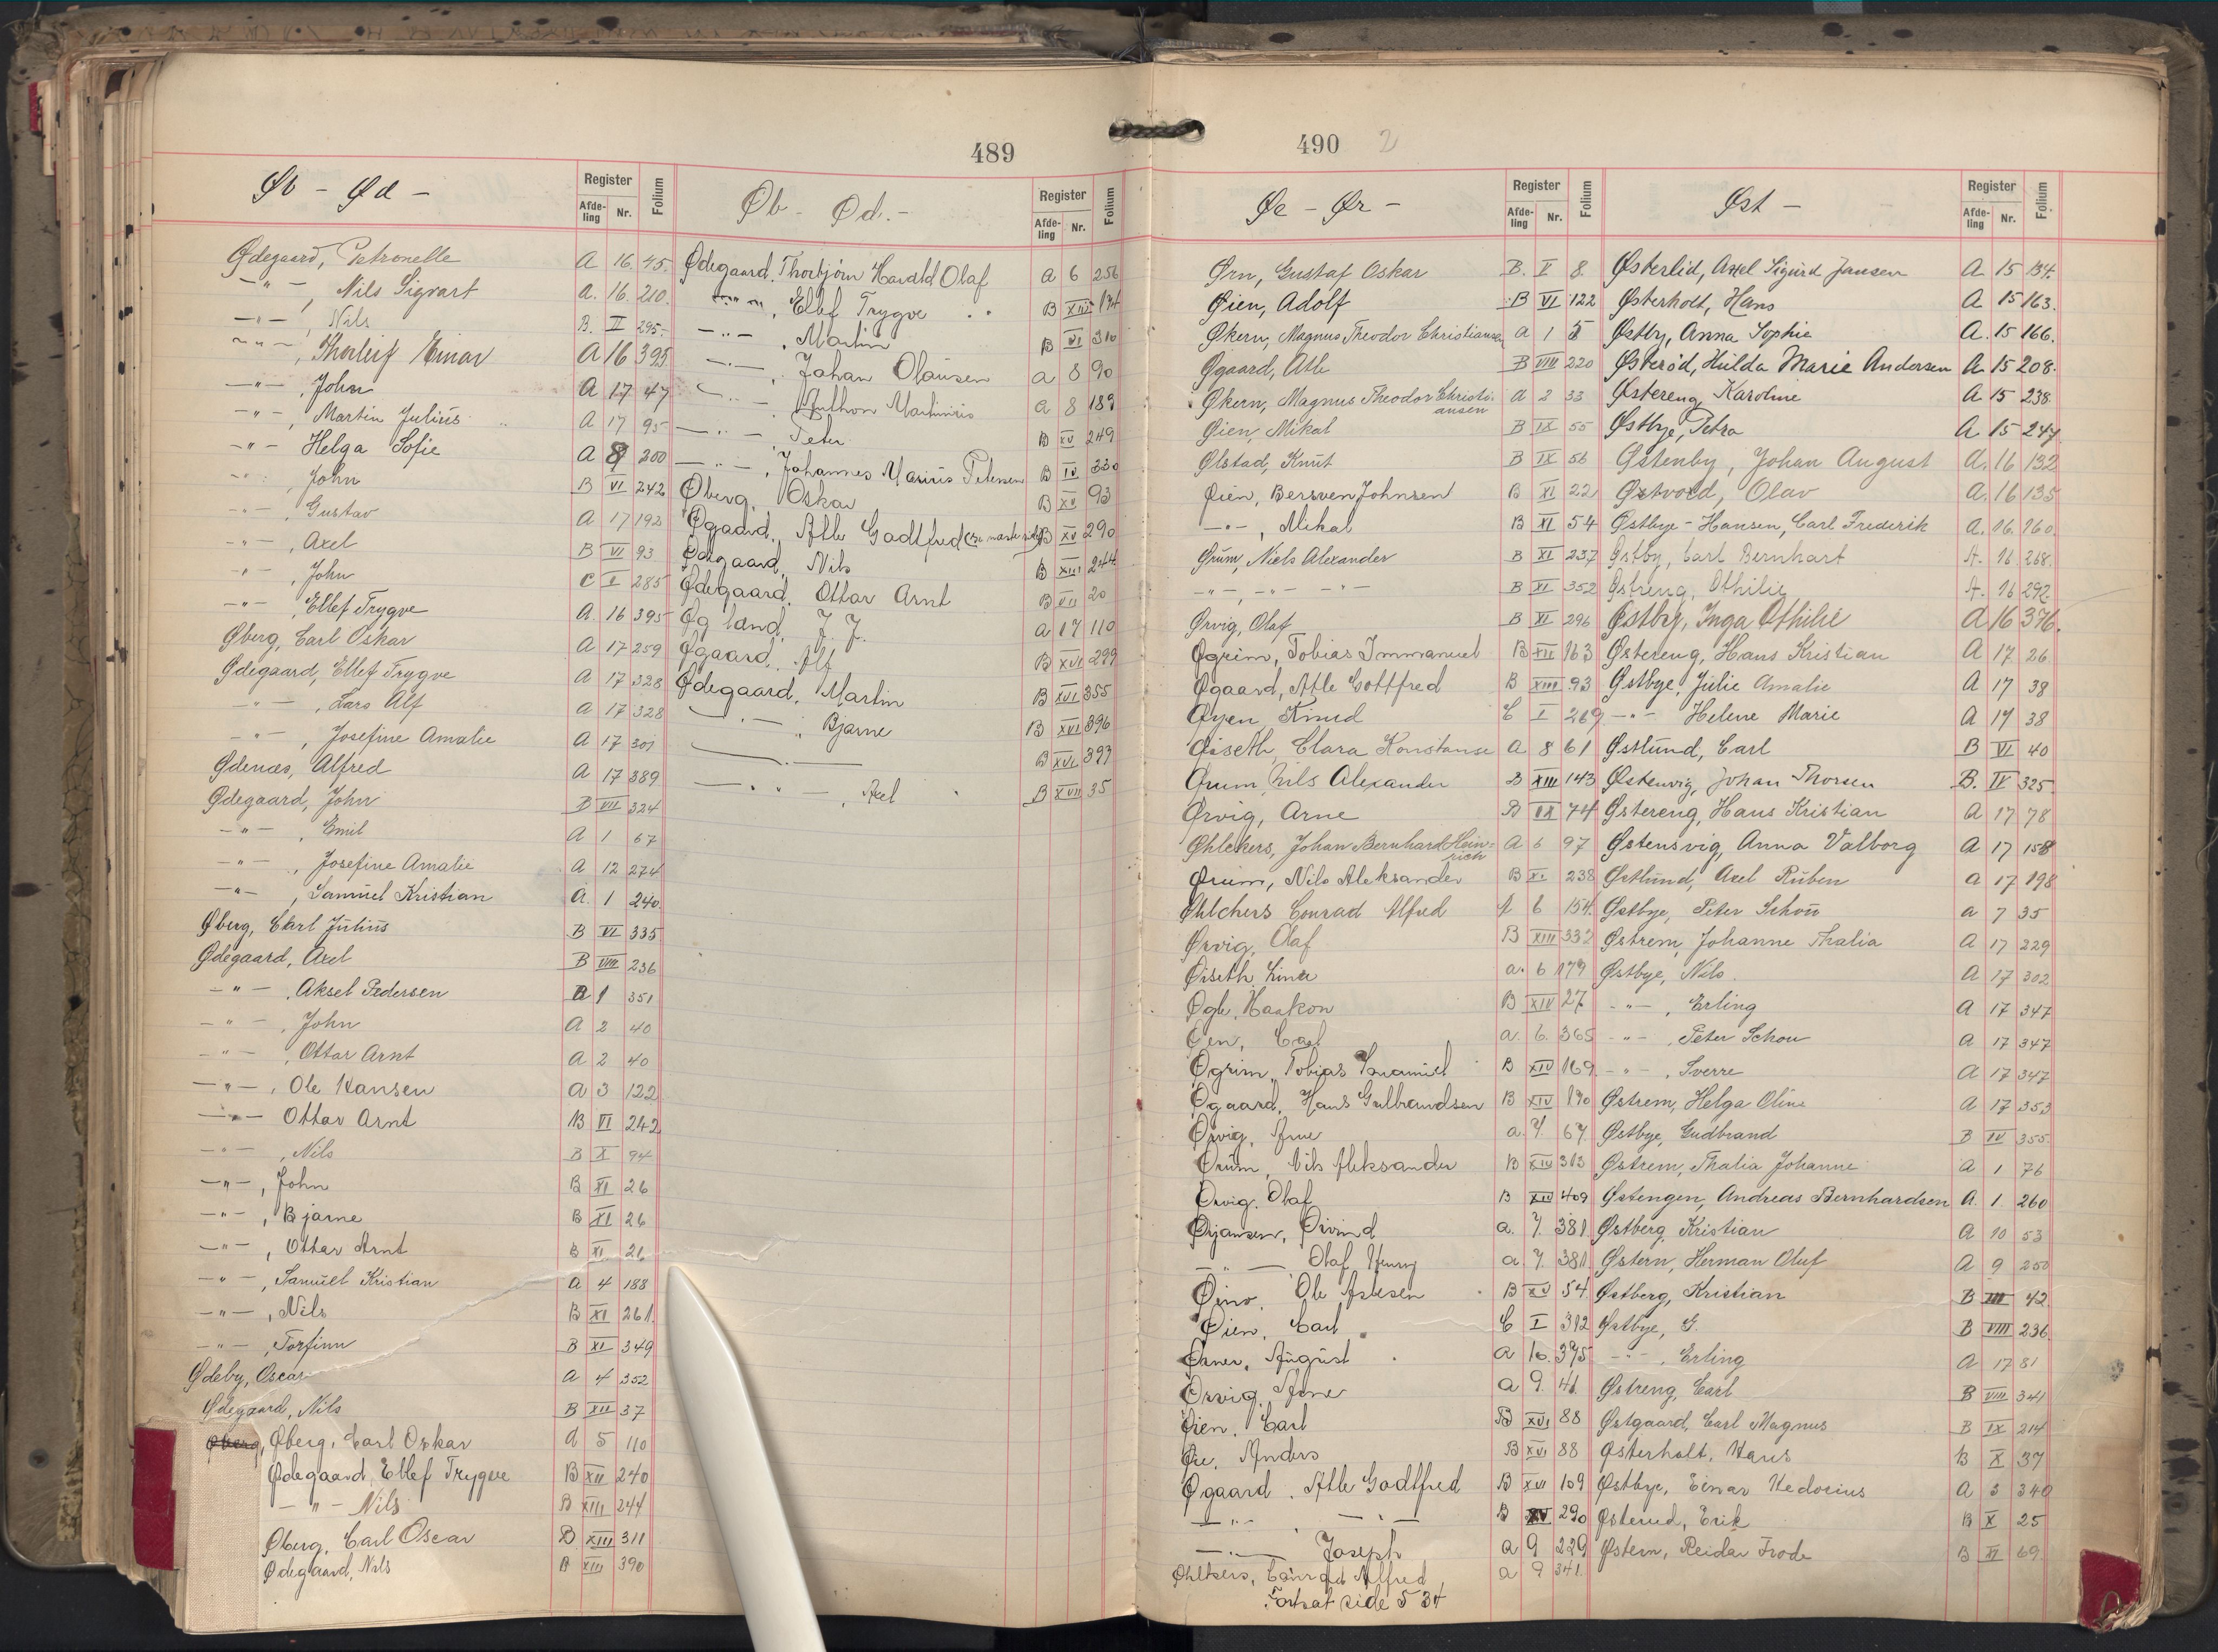 489
Øb - Ød -
Register
Folium
Afde-
ling
Nr.
Ødegaard, Petronelle A 16. 45.
-"- , Nils Sigvart A. 16. 210.
-"- , Nils B. II 295-
-"- , Thorleif Einar A 16 395
-"- , John A 17 47
-"- , Martin Julius A 17 95
-"- Helga Sofie A 8 200
-"- , John B VI 242
-"- , Gustav A 17 192
-"- , Axel B VI 93
-"- , John C I 285
-"- , Ellef Trygve A. 16 395
Øberg, Carl Oskar A 17 259
Ødegaard, Ellef Trygve A 17 328
-"- , Lars Alf A 17 328
-"- , Josefine Amalie A 17 301
Ødenæs, Alfred A 17 389
Ødegaard, John B VII 324
-"- , Emil A 1 67
-"- , Josefine Amalie A 12 274
-"- , Samuel Kristian A. 1 240.
Øberg, Carl Julius B VI 335
Ødegaard, Axel B VIII 236
-"- , Aksel Pedersen A 1 351
-"- , John A 2 40
-"- , Ottar Arnt A 2 40
-"- , Ole Hansen A 3 122
-"- Ottar Arnt B VI 242
-"- , Nils B X 94
-"- , John B XI 26
-"- , Bjarne B XI 26
-"- , Ottar Arnt B XI 26
-"- , Samuel Kristian A 4 188
-"- , Nils B XI 261.
-"- , Torfinn B XI 349
Ødeby, Oscar A 4 352
Ødegaard, Nils B XII 37
Øberg, Øberg, Carl Oskar A 5 110
Ødegaard, Ellef Trygve B XII 240
-"- Nils B XIII 244
Øberg, Carl Oscar B XIII 311
Ødegaard, Nils B XIII 390
Øb - Ød. -
Register
Folium
Afde-
ling
Nr.
Ødegaard, Thorbjørn Harald Olaf A 6 256
-"- , Ellef Trygve B XIII 174
-"- , Martin B VI 310
-"- , Johan Olausen A 8 90
-"- , Anthon Martinius A 8 189
-"- , Peter B XV 249
-"- , Johannes Marius Petersen B IV 330
Øberg, Oskar B XV 93
Øgaard, Atle Godtfred (se næste side) B XV 290
Ødegaard, Nils B XIII 244
Ødegaard, Ottar Arnt B VII 20
Øgland, J. J. A 17 110
Øgaard, Alf B XVI 299
Ødegaard, Martin B XVI 355
-"- , Bjarne B XVI 396
-"- B XVI 397
-"- , Axel B XVII 35
490 2
Øe - Ør -
Register
Folium
Afde-
ling
Nr.
Ørn, Gustaf Oskar B. V 8
Øien, Adolf B VI 122
Økern, Magnus Theodor Christiansen A 1 5
Øgaard, Atle B VIII 220
Økern, Magnus Theodor Christi-
ansen A 2 33
Øien, Mikal B IX 55
Ølstad, Knut B IX 56
Øien, Bersven Johnsen B XI 22
-"- , Mikal B XI 54
Ørum, Niels Alexander B XI 237
-"- , -"- -"- B XI 352
Ørvig, Olaf B XI 296
Øgrim, Tobias Immanuel B XII 163
Øgaard, Atle Gottfred B XIII 93
Øyen, Knud C I 269
Øiseth, Clara Konstanse A 8 61
Ørum, Nils Alexander B XIII 143
Ørvig, Arne B IX 74
Øhlckers, Johan Bernhard Hein=
rich A 6 97
Ørum, Nils Aleksander B XI 238
Øhlchers Conrad Alfred A 6 154.
Ørvig, Olaf B XIII 332
Øiseth, Lina A. 6 179
Øgle, Haakon B XIV 27
Øen, Carl A. 6. 365
Øgrim, Tobias Imanuel B XIV 169
Øgaard, Hans Gulbrandsen B XIV 190
Ørvig, Arne A. 7. 67
Ørum, Nils Aleksander B XIV 313
Ørvig, Olaf B XIV 409
Ørjansen, Øivind A. 7. 381
-"- Olaf Henry A 7. 381
Øino, Ole Aslesen B XV 54
Øien, Carl C I 312
August A 10. 375
Ørvig, Arne A 9. 41.
Øien, Carl B XVI 88
Øie, Anders B XVI 88
Øgaard, Atle Godtfred B XVI 109
-"- , -"- B XV 290
-"- Joseph A 9 229
Øhlkers, Conrad Alfred A 9 341.
Fortsat side 534
Øst -
Register
Folium
Afde-
ling
Nr.
Østerlid, Axel Sigurd Jansen A 15 134.
Østerholt, Hans A 15 163.
Østby, Anna Sophie A. 15 166.
Østerød, Hulda Marie Andersen A 15 208.
Østereng, Karoline A 15 238
Østbye, Petra A 15 247
Østenby, Johan August A. 16 132
Østvold, Olav A. 16 135
Østbye - Hansen, Carl Frederik A. 16. 160
Østby, Carl Bernhart A. 16. 268.
Østreng, Othilie A. 16 292.
Østby, Inga Othilie A 16 376.
Østereng, Hans Kristian A 17 26
Østbye, Julie Amalie A 17 38
-"- Helene Marie A 17 38
Østlund, Carl B VI 40
Østenvig, Johan Thorsen B. IV 325
Østereng, Hans Kristian A 17 78
Østensvig, Anna Valborg A 17 158
Østlund, Axel Ruben A 17 198
Østbye, Peter Schou A 7 35
Østrem, Johanne Thalia A 17 229
Østbye, Nils A 17 302
-"- , Erling A 17 347
-"- , Peter Schou A 17 347
-"- , Sverre A 17 347
Østrem, Helga Oline A 17 353
Østbye, Gudbrand B IV 355
Østrem, Thalia Johanne A 1 76
Østengen, Andreas Bernhardsen A. 1. 260
Østberg, Kristian A 10 53
Østern, Herman Oluf A 9 250
Østberg, Kristian B III 42
Østbye, G. B VIII 236
-"- , Erling A 17 81
Østreng, Carl B VIII 341
Østgaard, Carl Magnus B IX 214
Østerholt, Hans B X 37
Østbye, Einar Hedocius A 3 340
Østerud, Erik B X 25
Østern, Reidar Frode B XI 69